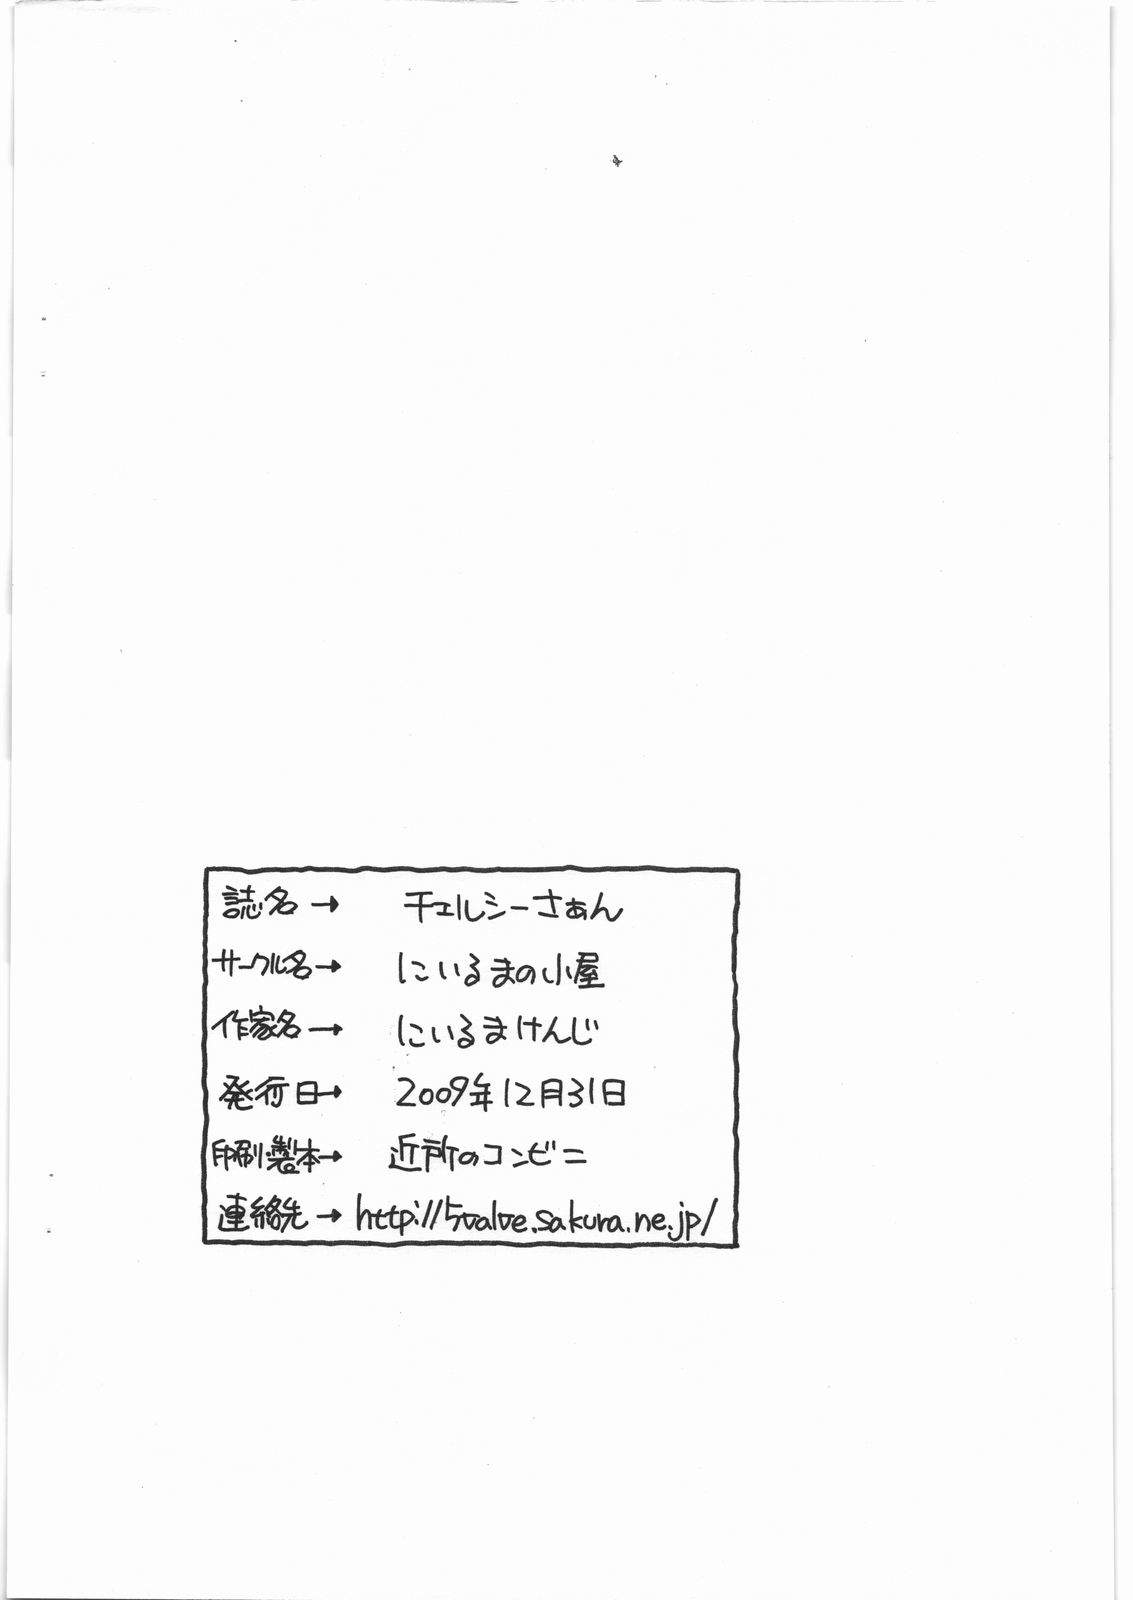 誌名→ チェルシーさぁん
サークル名→ にいるまの小屋
作家名→ にいるまけんじ
発行日→ 2009年12月31日
印刷・製本→ 近所のコンビニ
連絡先→ http://5valve.sakura.ne.jp/